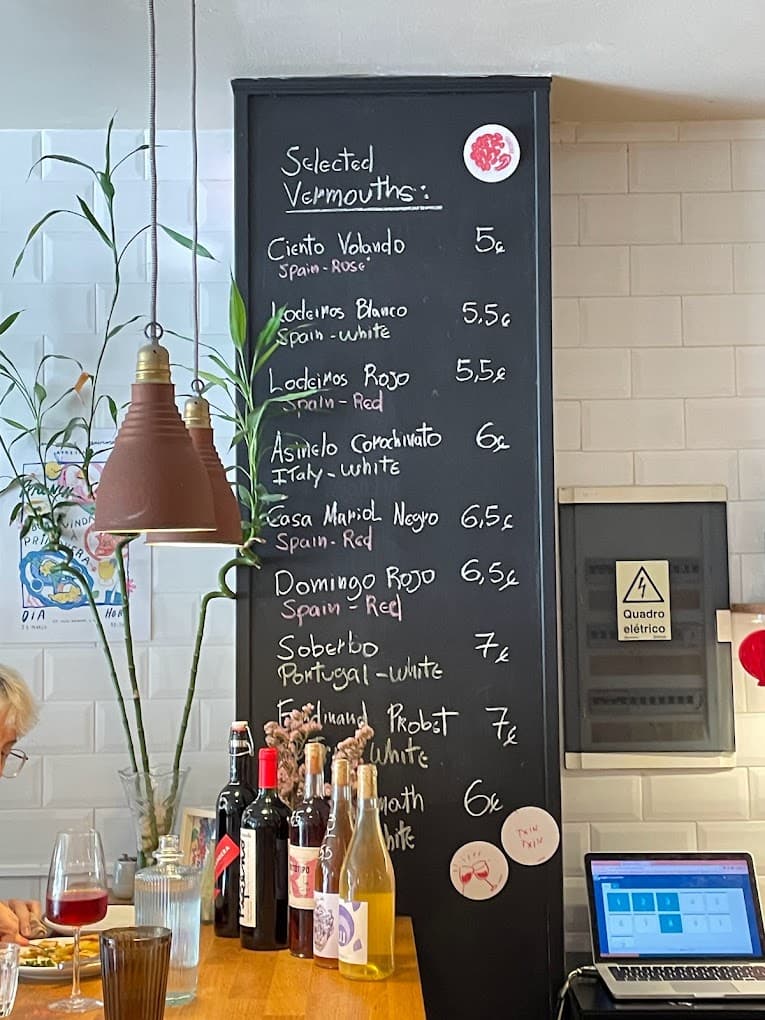 Selected
Vermouths:
Ciento Volando 5€
Spain - Rosé
Lodeiros Blanco 5,5€
Spain - White
Lodeiros Rojo 5,5€
Spain - Red
Asinelo Corochinato 6€
Italy - White
Casa Mariol Negro 6,5€
Spain - Red
Domingo Rojo 6,5€
Spain - Red
Soberbo 7€
Portugal - White
Ferdinand Probst 7€
White
6€
TXIN
TXIN
Quadro
elétrico
DIA